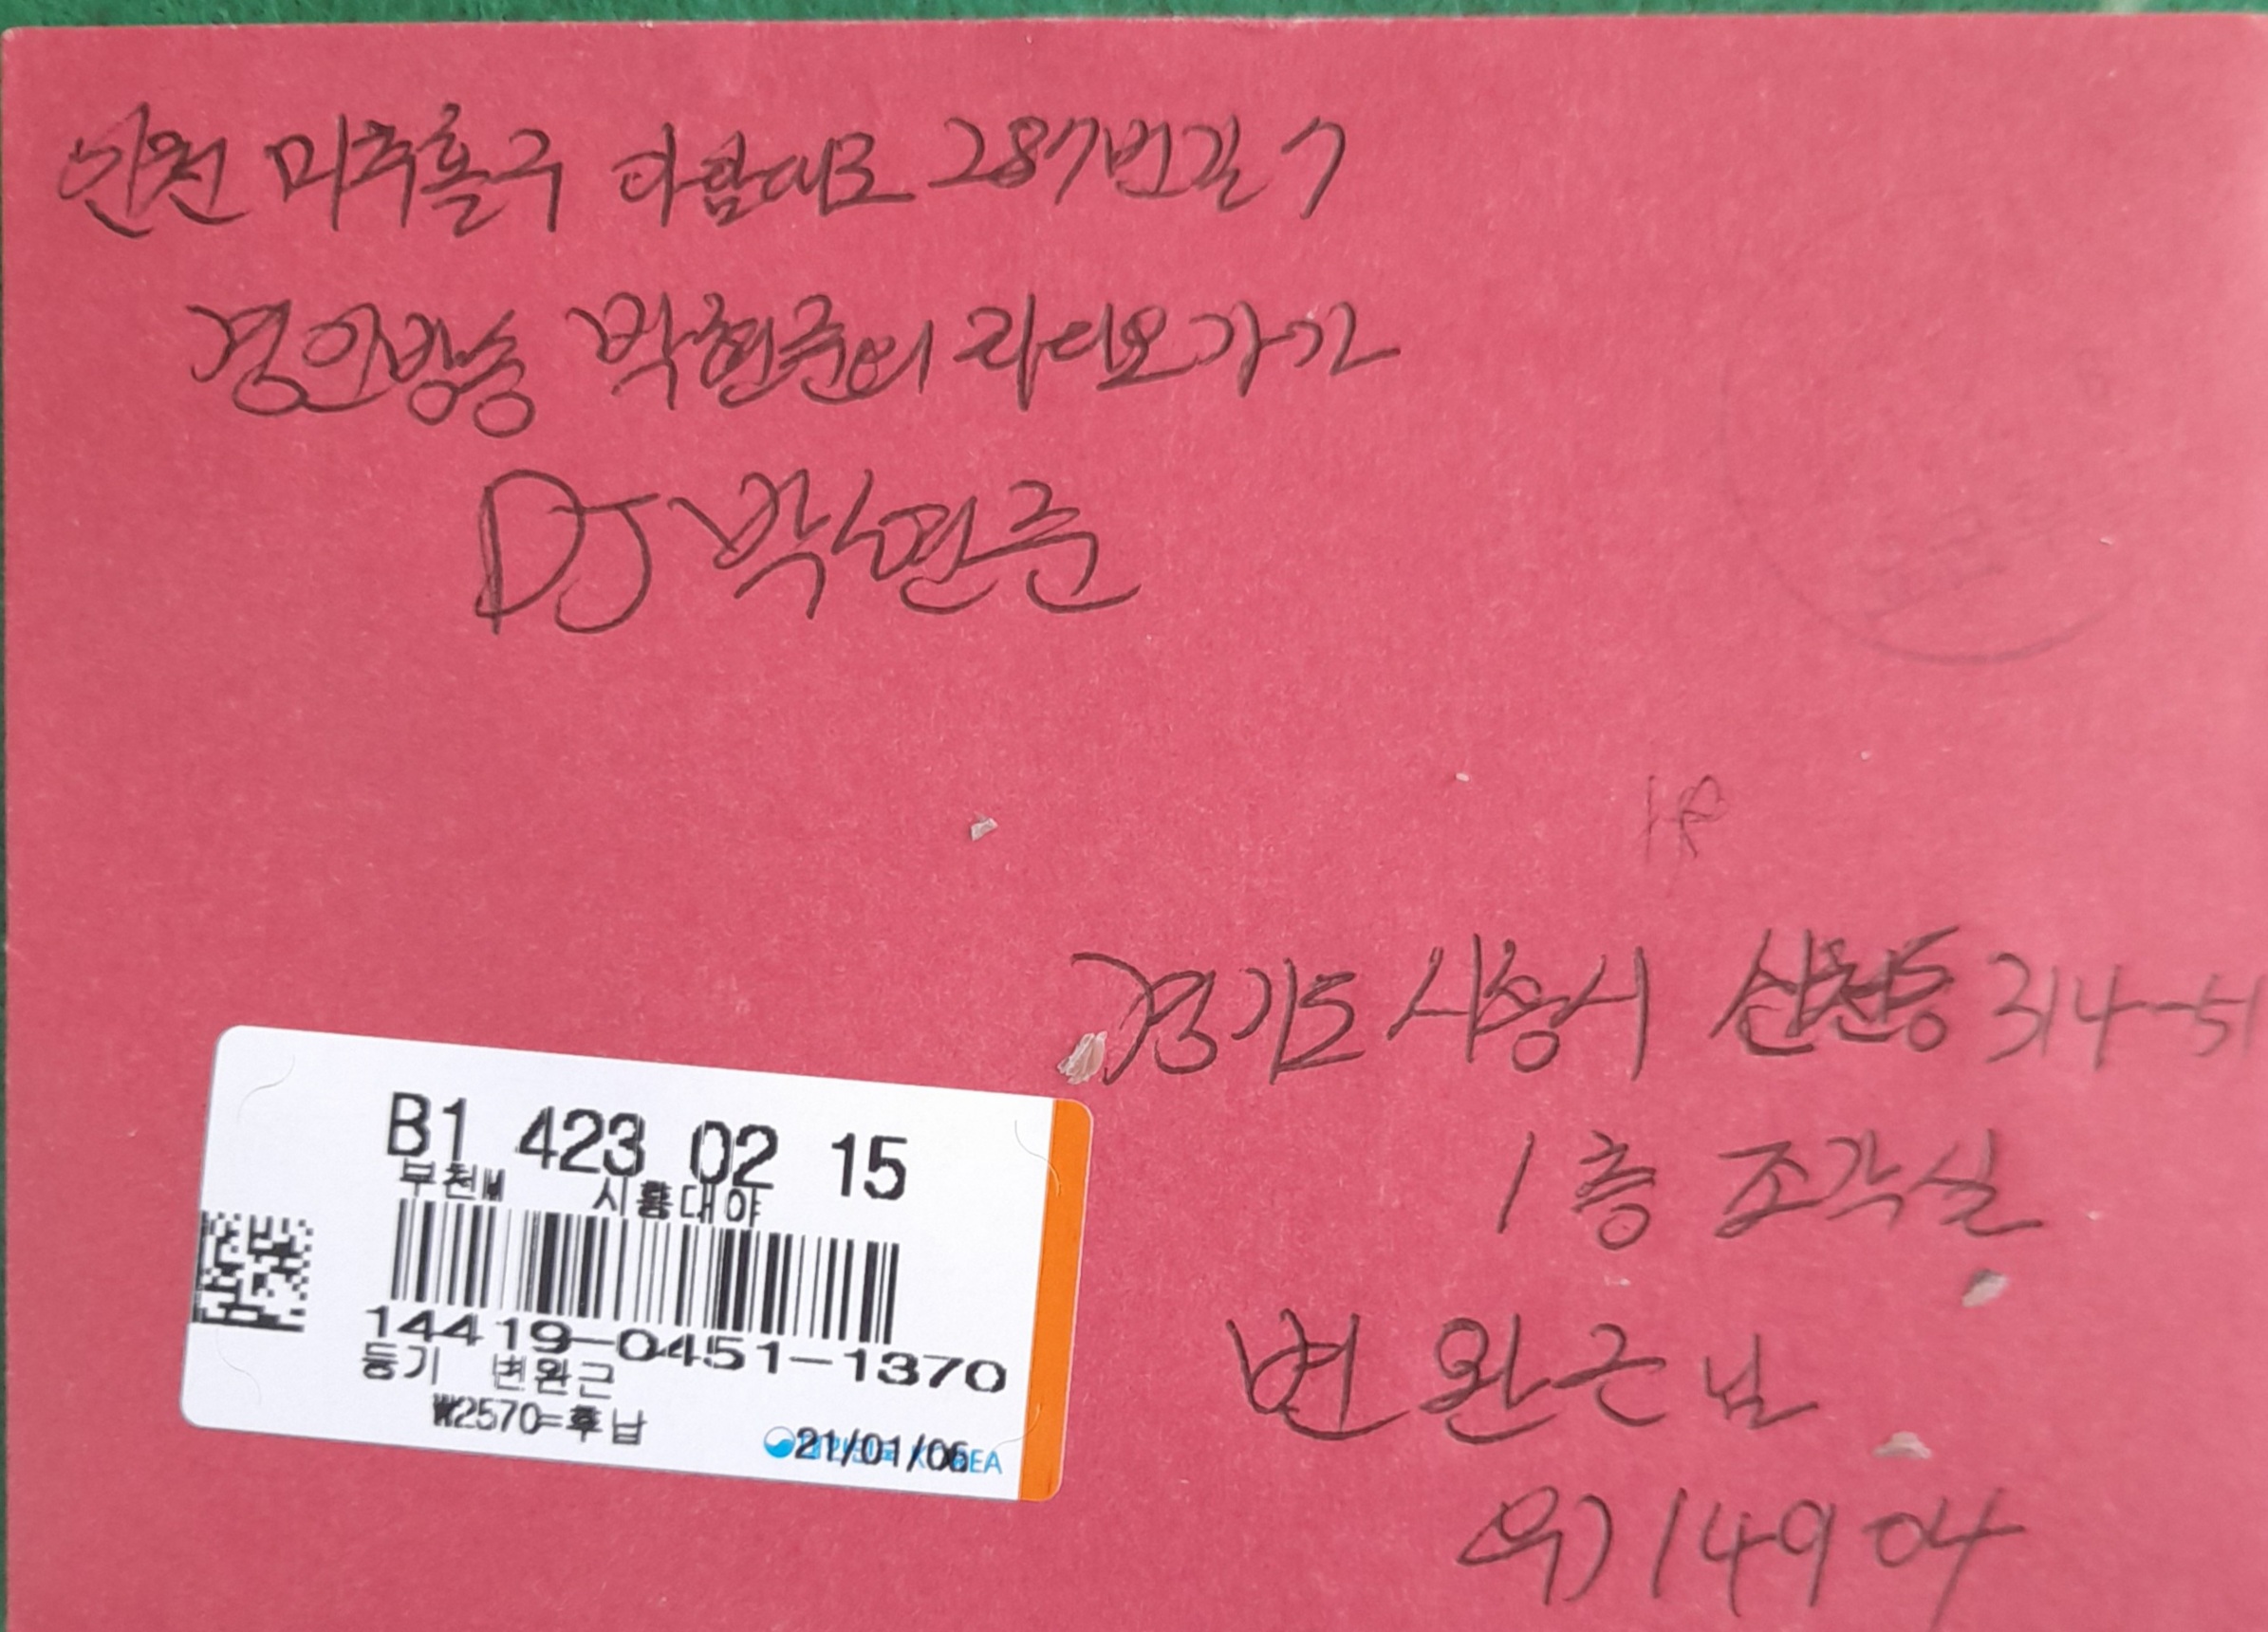 인천 미추홀구 아암대로 287번길 7
경인방송 박현준의 라디오가가
DJ 박현준
경기도 시흥시 신천동 314-51
1층 조각실
변완근님
우) 14904
B1 423 02 15
부천M 시흥대야
14419-0451-1370
등기 변완근
₩2570=후납
21/01/06